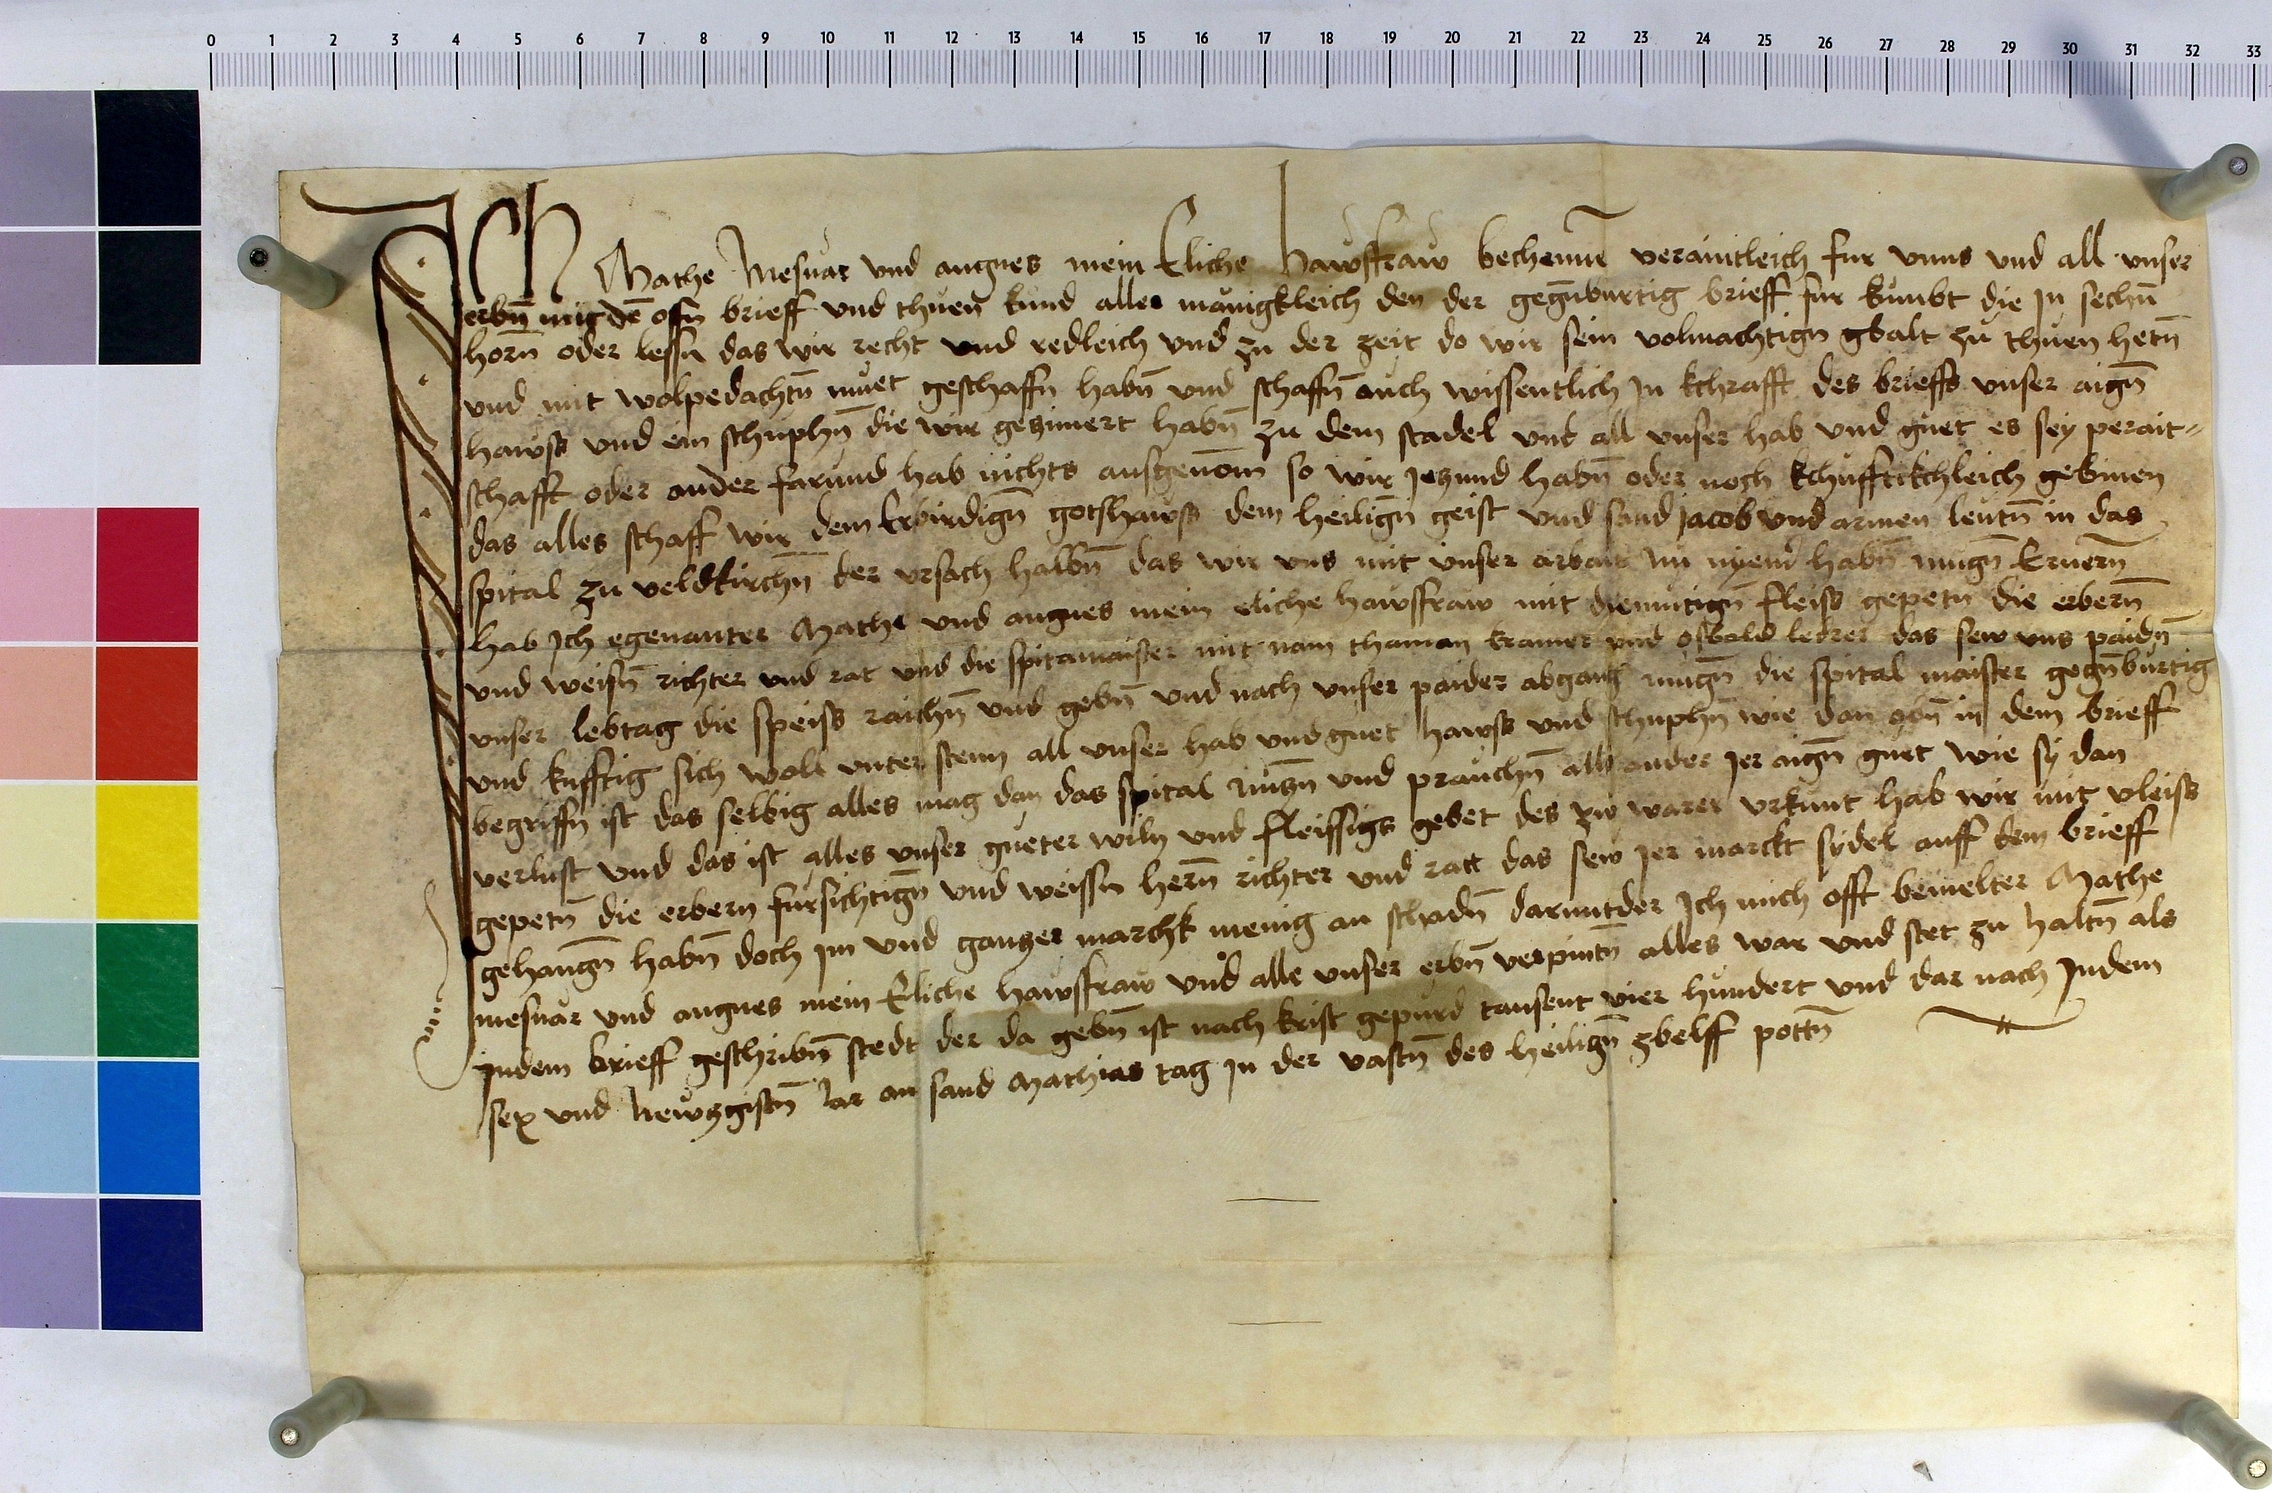 0 1 2 3 4 5 6 7 8 9 10 11 12 13 14 15 16 17 18 19 20 21 22 23 24 25 26 27 28 29 30 31 32 33
Ich Mathe Mesnar vnd angnes mein Eliche hawsfraw bechennē veraintleich fur vnns vnd all vnser
erbn̄ mit dē offn brieff vnd thuen kund aller mänigkleich den der gegn̄burtig brieff fur kumbt die jn sechn̄
horn̄ oder lessn das wir recht vnd redleich vnd zu der zeit do wir sein volmachtign gbalt zu thuen hetn̄
vnd mit wolpedachtn̄ muet geschaffn habn̄ vnd schaffn̄ auch wissentlich jn kchrafft des brieffs vnser aign̄
hawss vnd ein schuphn̄ die wir gezimert habn̄ zu dem stadel vnd all vnser hab vnd guet es sey perait-
schafft oder ander farund hab nichts ausgenom̄ so wir jeczund habn̄ oder noch kchufftikchleich gebinen
das alles schaff wir dem Erbirdign̄ gotshawss dem heilign̄ geist vnd sand jacob vnd armen leutn̄ in das
spital zu veldkirchn̄ der vrsach halbn̄ das wir vns mit vnser arbait habn̄ mugn̄ Ernern̄
hab Jch egenanter Mathe vnd angnes mein eliche hawsfraw mit diemutign̄ fleiss gepetn̄ die erbern̄
vnd weisn̄ richter vnd rat vnd die spitamaister mit nam thaman kramer vnd osbald ledrer das sew vns paidn̄
vnser lebtag die speiss raichn̄ vnd gebn̄ vnd nach vnser paider abgang mugn̄ die spital maister gegn̄burtig
vnd kufftig sich woll vnter stenn all vnser hab vnd guet hawss vnd schuphn̄ wie dan obn̄ in dem brieff
begriffn ist das selbig alles mag dan das spital nuczn̄ vnd prauchn̄ alls ander jer aign̄ guet wie sy dan
verlust vnd das ist alles vnser gueter wiln vnd fleissigs gebet des zw warer vrkunt hab wir mit vleiss
gepetn̄ die erbern fursichtign̄ vnd weissn hern̄ richter vnd ratt das sew jer marckt sydel auff dem brieff
gehangn̄ habn̄ doch jm vnd ganczer marchk menig an schadn̄ darunder Jch mich offt bemelter Mathe
mesnar vnd angnes mein Eliche hawsfraw vnd alle vnser erbn̄ verpintn̄ alles war vnd stet zu haltn̄ als
jndem brieff geschribn̄ stedt der da gebn̄ ist nach krist gepurd tausent vier hundert vnd dar nach Jndem
sex vnd newczgistn̄ Jar an sand Mathias tag jn der vastn̄ des heilign̄ zbelff pottn̄